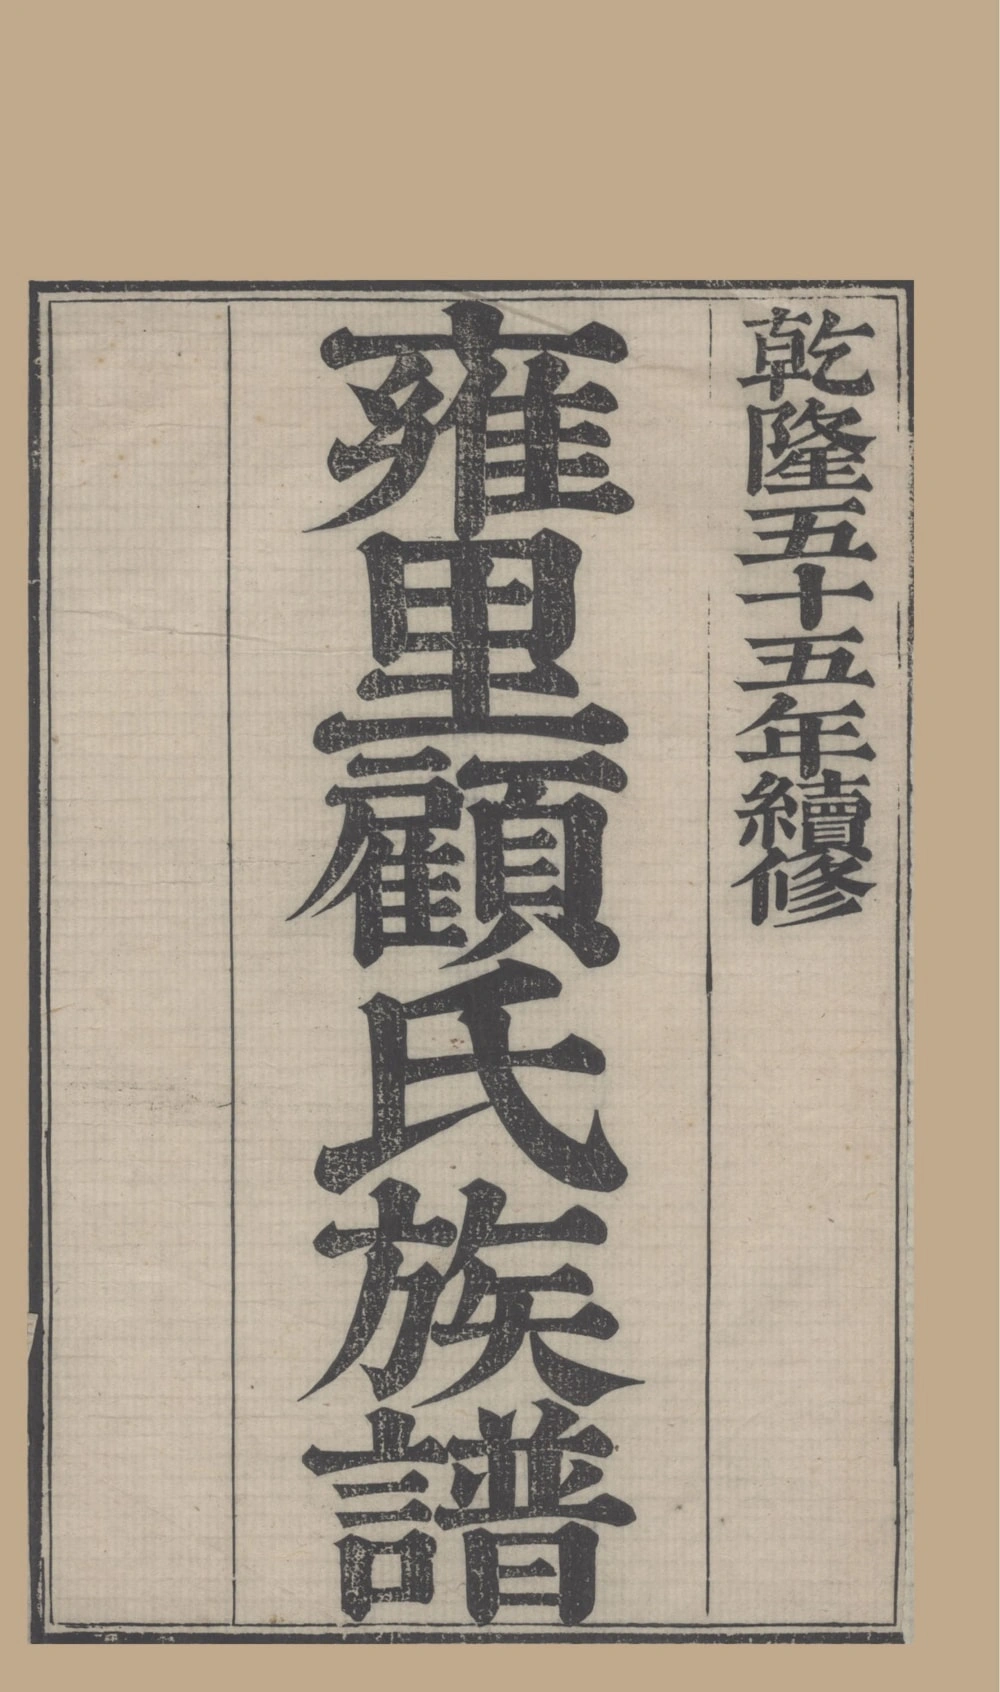 乾隆五十五年續修
雍里顧氏族譜